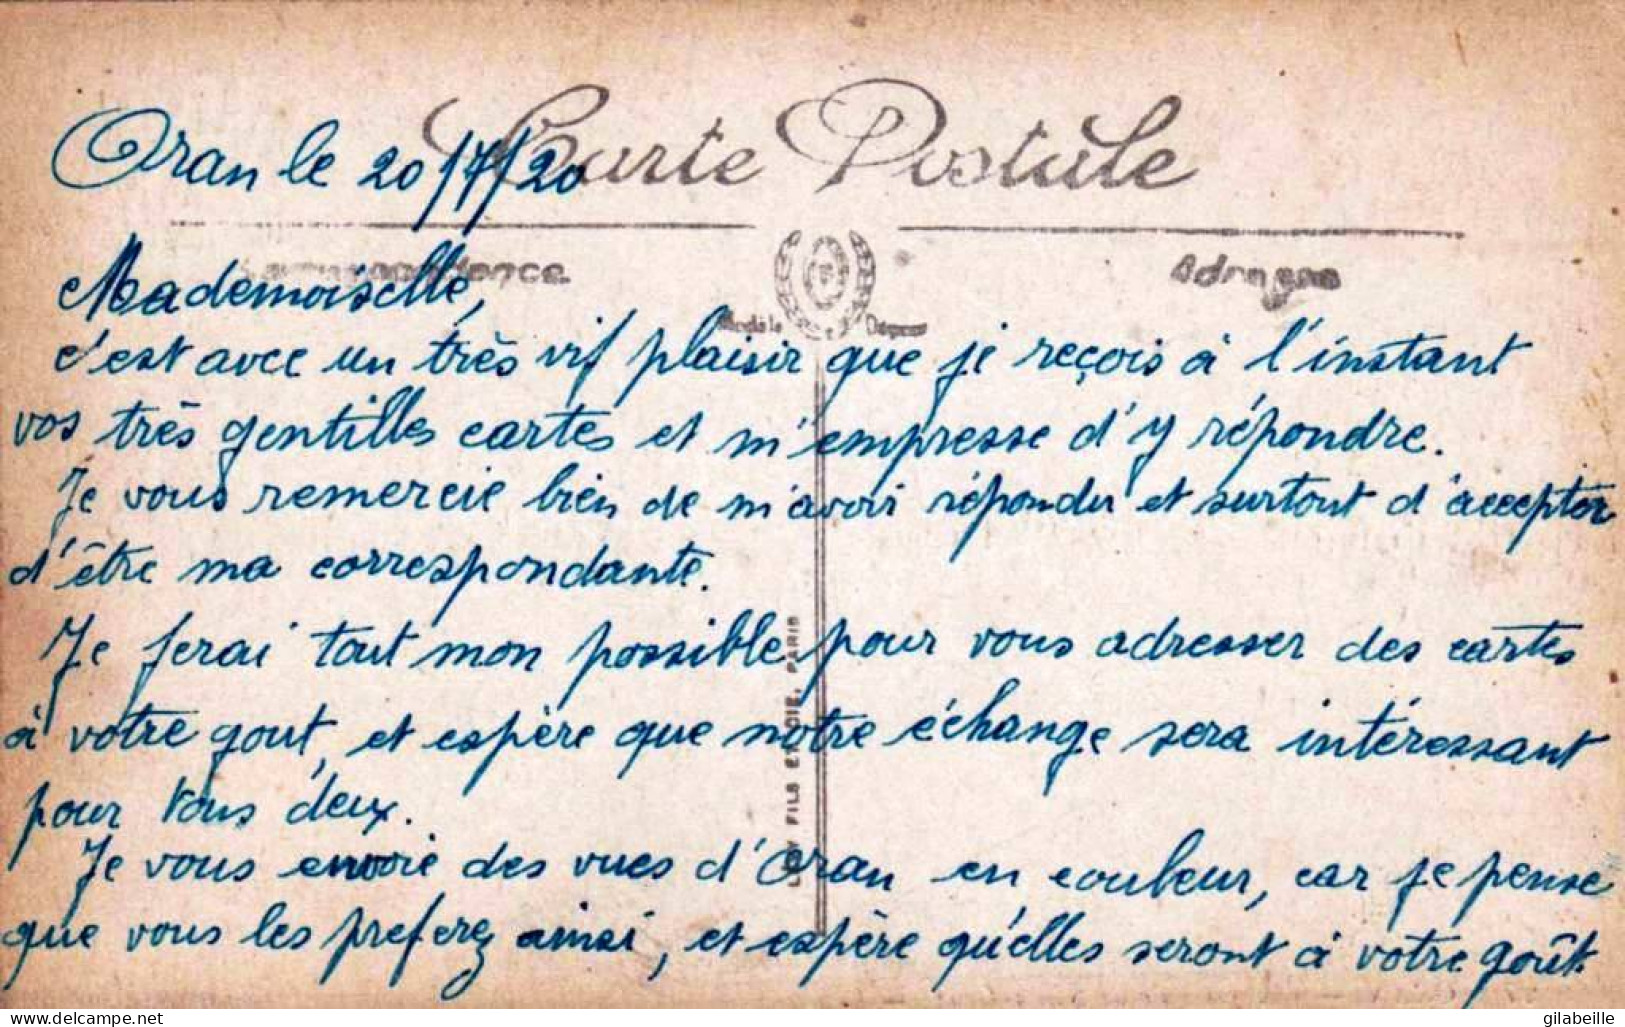 Carte Postale
Oran le 20/7/20
Correspondance
Adresse
Modèle Déposé
Mademoiselle,
c'est avec un très vif plaisir que je reçois à l'instant
vos très gentilles cartes et m'empresse d'y répondre.
Je vous remercie bien de m'avoir répondu et surtout d'accepter
d'être ma correspondante.
Je ferai tout mon possible pour vous adresser des cartes
à votre gout, et espère que notre échange sera intéressant
pour tous deux.
Je vous envoie des vues d'Oran en couleur, car je pense
que vous les preferez ainsi, et espère qu'elles seront à votre goût.
LEVY FILS ET CIE, PARIS
www.delcampe.net
gilabeille